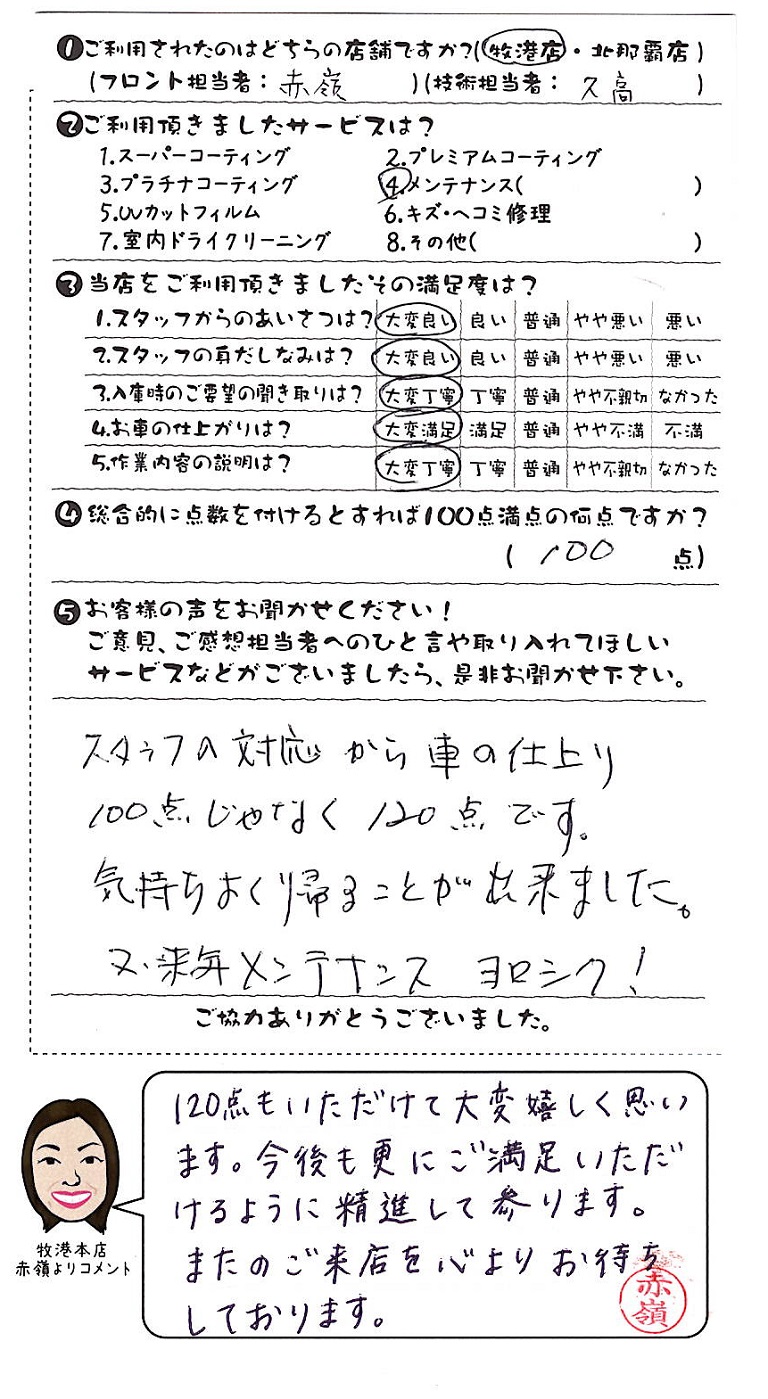 ❶ご利用されたのはどちらの店舗ですか?(牧港店・北那覇店)
(フロント担当者: 赤嶺 )(技術担当者: 久高 )
❷ご利用頂きましたサービスは?
1.スーパーコーティング 2.プレミアムコーティング
3.プラチナコーティング 4.メンテナンス( )
5.UVカットフィルム 6.キズ・ヘコミ修理
7.室内ドライクリーニング 8.その他( )
❸当店をご利用頂きましたその満足度は?
1.スタッフからのあいさつは? 大変良い 良い 普通 やや悪い 悪い
2.スタッフの身だしなみは? 大変良い 良い 普通 やや悪い 悪い
3.入庫時のご要望の聞き取りは? 大変丁寧 丁寧 普通 やや不親切 なかった
4.お車の仕上がりは? 大変満足 満足 普通 やや不満 不満
5.作業内容の説明は? 大変丁寧 丁寧 普通 やや不親切 なかった
❹総合的に点数を付けるとすれば100点満点の何点ですか?
( 100 点)
❺お客様の声をお聞かせください!
ご意見、ご感想担当者へのひと言や取り入れてほしい
サービスなどがございましたら、是非お聞かせ下さい。
スタッフの対応から車の仕上り
100点じゃなく120点です。
気持ちよくり帰ることが出来ました。
又、来年メンテナンス ヨロシク!
ご協力ありがとうございました。
120点もいただけて大変嬉しく思い
ます。今後も更にご満足いただ
けるように精進して参ります。
またのご来店を心よりお待ち
しております。
牧港本店
赤嶺よりコメント
赤嶺